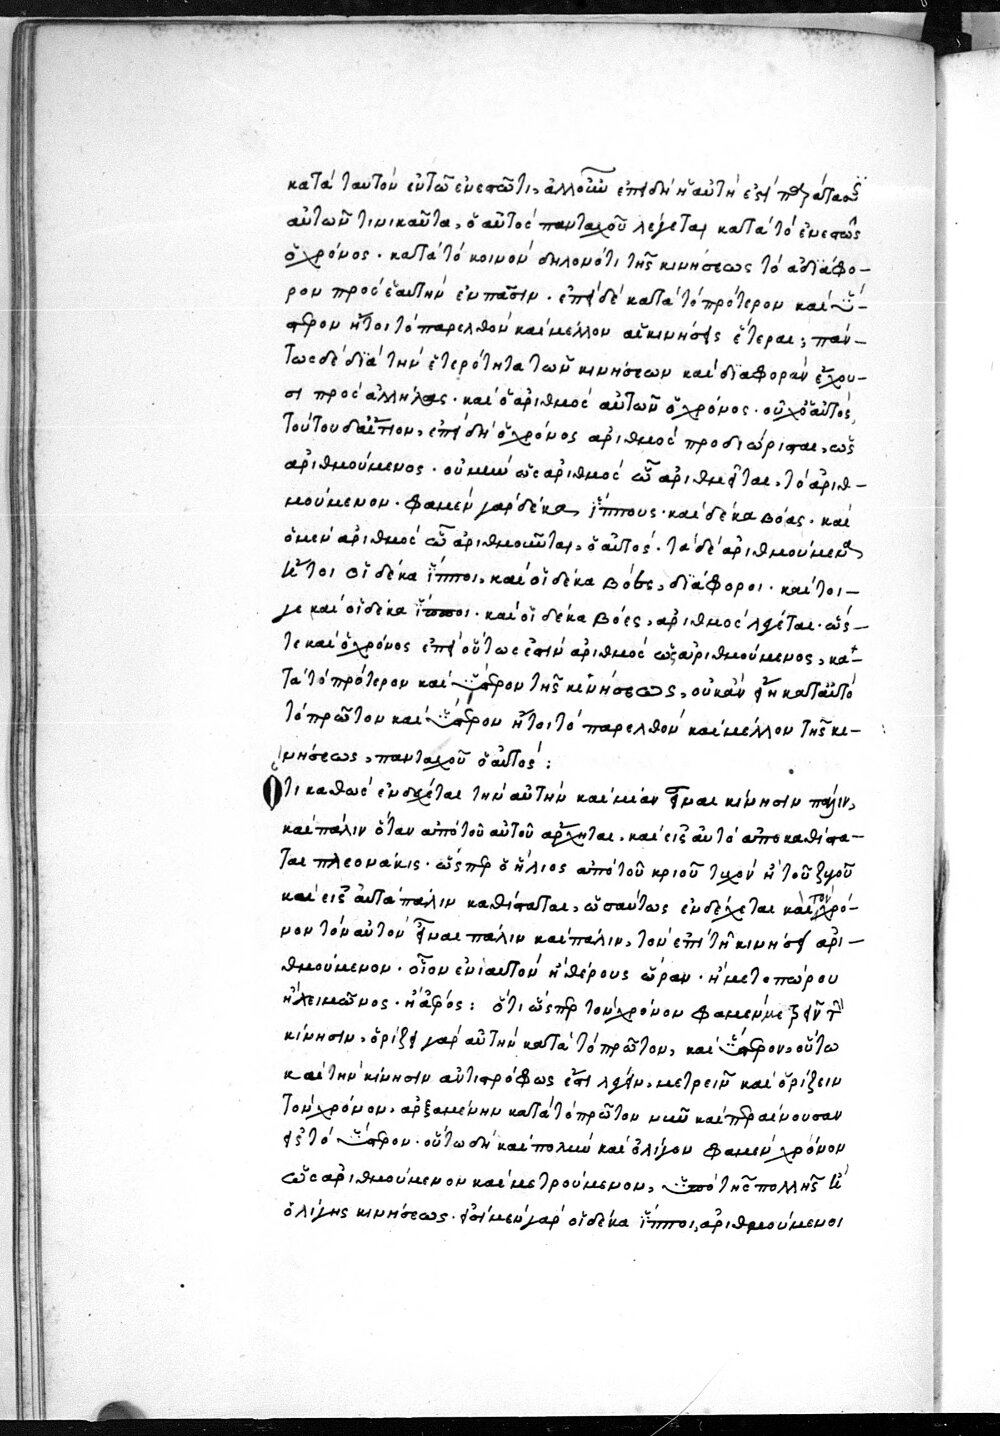 κατὰ ταυτὸν ἐν τῶ ἐνεστῶτι, ἀλλ' οὖν ἐπειδὴ ἡ αὐτή ἐστι
αὐτῶν τινικαῦτα, ὁ αὐτὸς πανταχοῦ λέγεται κατὰ τὸ ἐνεστὼς
ὁ χρόνος · κατὰ τὸ κοινὸν δηλονότι τῆς κινήσεως τὸ ἀδιάφο-
ρον πρὸς ἑαυτὴν ἐν πᾶσιν · ἐπεὶ δὲ κατὰ τὸ πρότερον καὶ ὕ-
στερον ἤτοι τὸ παρελθὸν καὶ μέλλον αἱ κινήσεις ἕτεραι, πάν-
τως δὲ διὰ τὴν ἑτερότητα τῶν κινήσεων καὶ διαφορὰν ἔχου-
σι πρὸς ἀλλήλας · καὶ ὁ ἀριθμὸς αὐτῶν ὁ χρόνος · οὐχ ὁ αὐτός,
τούτου δ' αἴτιον, ἐπειδὴ ὁ χρόνος ἀριθμὸς προδιώρισται, ὡς
ἀριθμούμενος · οὐ μὴν ὡς ἀριθμὸς ὧ ἀριθμεῖται, τὸ ἀριθ-
μούμενον · φαμὲν γὰρ δέκα ἵππους · καὶ δέκα βόας · καὶ
ὁ μὲν ἀριθμὸς ὧ ἀριθμοῦνται, ὁ αὐτός · τὰ δὲ ἀριθμούμενα
ἤτοι οἱ δέκα ἵπποι, καὶ οἱ δέκα βόες, διάφοροι · καίτοι-
γε καὶ οἱ δέκα ἵπποι · καὶ οἱ δέκα βόες, ἀριθμὸς λέγεται · ὥς-
τε καὶ ὁ χρόνος ἐπεὶ οὕτως ἐστὶν ἀριθμὸς ὡς ἀριθμούμενος, κα-
τὰ τὸ πρότερον καὶ ὕστερον τῆς κινήσεως, οὐκ ἂν εἴη κατ' αὐτὸ
τὸ πρῶτον καὶ ὕστερον ἤτοι τὸ παρελθὸν καὶ μέλλον τῆς κι-
νήσεως, πανταχοῦ ὁ αὐτός :
Ὅτι καθὼς ἐνδέχεται τὴν αὐτὴν καὶ μίαν εἶναι κίνησιν πάλιν,
καὶ πάλιν ὅταν ἀπὸ τοῦ αὐτοῦ ἄρχηται, καὶ εἰς αὐτὸ ἀποκαθίστα-
ται πλεονάκις · ὥσπερ ὁ ἥλιος ἀπὸ τοῦ κριοῦ τυχὸν ἢ τοῦ ζυγοῦ
καὶ εἰς αὐτὰ πάλιν καθίσταται, ὡσαύτως ἐνδέχεται καὶ τὸν χρό-
νον τὸν αὐτὸν εἶναι πάλιν καὶ πάλιν, τὸν ἐπὶ τῇ κινήσει ἀρι-
θμούμενον · οἷον ἐνιαυτὸν ἢ θέρους ὥραν · ἢ μετοπώρου
ἢ χειμῶνος · ἢ ἀέρος : ὅτι ὥσπερ τὸν χρόνον φαμὲν μετρεῖν τὴν
κίνησιν, ὁρίζει γὰρ αὐτὴν κατὰ τὸ πρῶτον, καὶ ὕστερον, οὕτω
καὶ τὴν κίνησιν ἀντιστρόφως ἔστι λέγειν, μετρεῖν καὶ ὁρίζειν
τὸν χρόνον, ἀρξαμένην κατὰ τὸ πρῶτον νῦν καὶ περαίνουσαν
εἰς τὸ ὕστερον · οὕτω δὴ καὶ πολὺν καὶ ὀλίγον φαμὲν χρόνον
ὡς ἀριθμούμενον καὶ μετρούμενον, ὑπὸ τῆς πολλῆς ἢ
ὀλίγης κινήσεως · εἰσὶ μὲν γὰρ οἱ δέκα ἵπποι, ἀριθμούμενοι